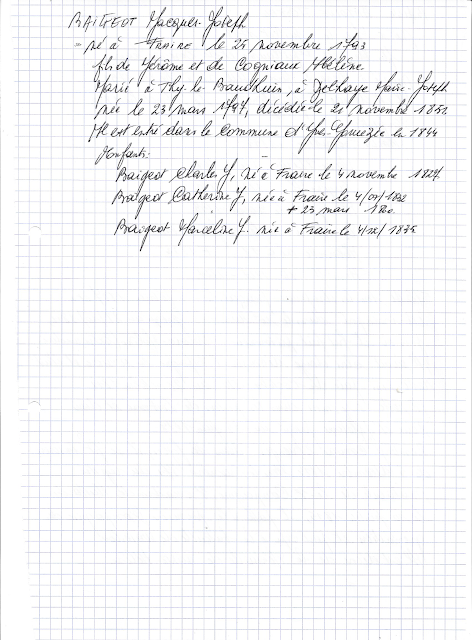 BAITGEOT Jacques-Joseph
né à FRAIRE le 25 novembre 1793
fils de Jérôme et de Cogniaux Hélène.
Marié à Thy-le-Baudhuin, à Delhaye Marie-Joseph
née le 23 mars 1797, décédée le 21 novembre 1851.
Il est entré dans la Commune d'Yves-Gomezée en 1844
Enfants:
Baigeot Charles J, né à Fraire le 4 novembre 1827.
Baigeot Catherine J, née à Fraire le
+ 23 mars
Baigeot Marceline J. née à Fraire le